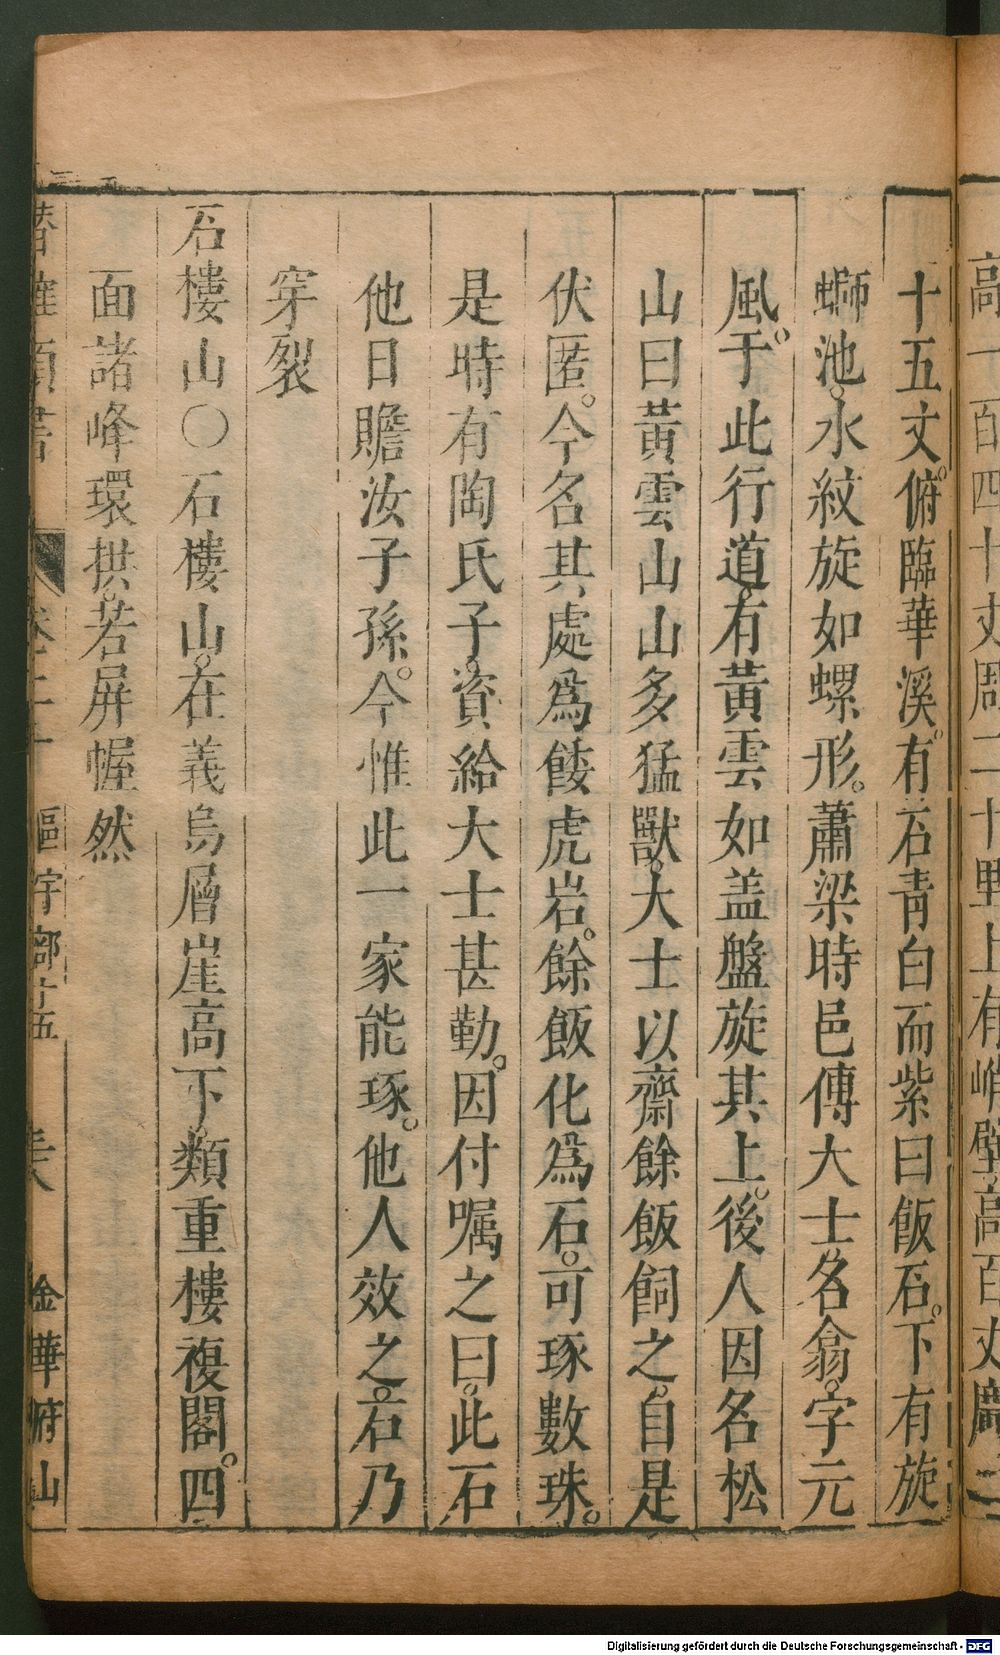 十五丈。俯臨華溪。有石青白而紫曰飯石。下有旋
螄池。水紋旋如螺形。蕭梁時邑傅大士。名翕。字元
風。于此行道。有黃雲如盖盤旋其上。後人因名松
山曰黃雲山山多猛獸。大士以齋餘飯飼之。自是
伏匿。今名其處爲餧虎岩。餘飯化爲石。可琢數珠。
是時有陶氏子。資給大士甚勤。因付嘱之曰。此石
他日贍汝子孫。今惟此一家能琢。他人效之。石乃
穿裂
石樓山〇石樓山。在義烏層崖高下。類重樓複閣。四
面諸峰環拱。若屏幄然
卷二十 區宇部十五 金華府山
高一百四十丈周二十里上有峭壁高百丈
Digitalisierung gefördert durch die Deutsche Forschungsgemeinschaft - DFG